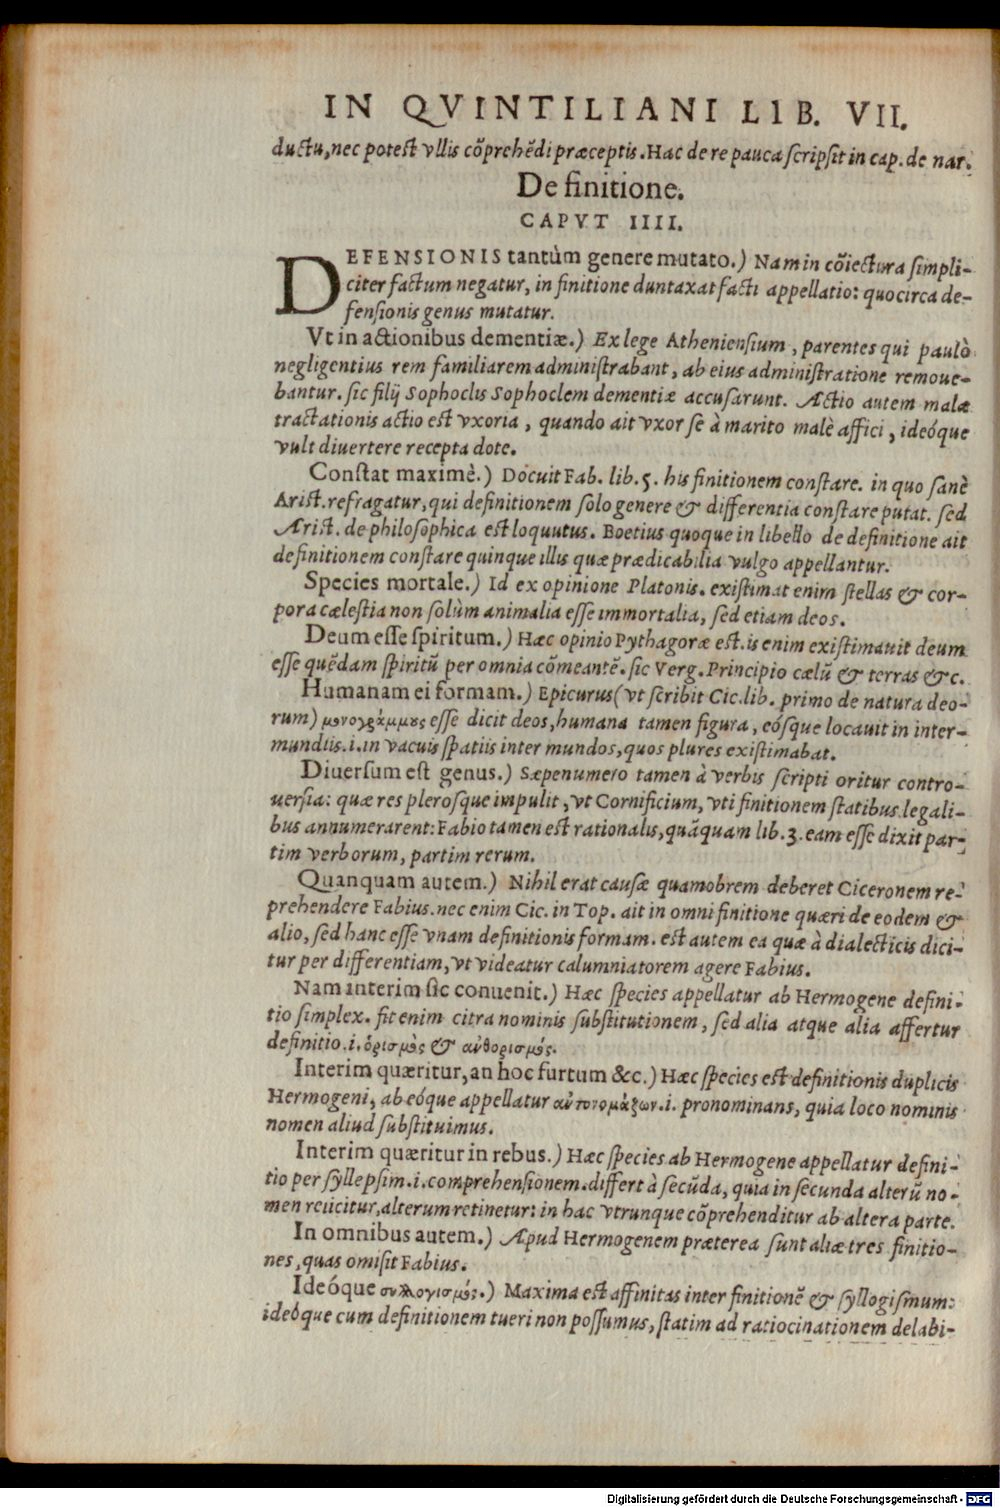 IN QVINTILIANI LIB. VII.
ductu, nec potest vllis cõprehẽdi præceptis. Hac de re pauca scripsit in cap. de nar.
De finitione.
CAPVT IIII.
DEFENSIONIS tantùm genere mutato.) Nam in cõiectura simpli-
citer factum negatur, in finitione duntaxat facti appellatio: quocirca de-
fensionis genus mutatur.
Vt in actionibus dementiæ.) Ex lege Atheniensium, parentes qui paulò
negligentius rem familiarem administrabant, ab eius administratione remoue-
bantur. sic filij Sophoclis Sophoclem dementiæ accusarunt. Actio autem malæ
tractationis actio est vxoria, quando ait vxor se à marito malè affici, ideóque
vult diuertere recepta dote.
Constat maximè.) Docuit Fab. lib. 5. his finitionem constare. in quo sanè
Arist. refragatur, qui definitionem solo genere & differentia constare putat. sed
Arist. de philosophica est loquutus. Boetius quoque in libello de definitione ait
definitionem constare quinque illis quæ prædicabilia vulgo appellantur.
Species mortale.) Id ex opinione Platonis. existimat enim stellas & cor-
pora cælestia non solùm animalia esse immortalia, sed etiam deos.
Deum esse spiritum.) Hæc opinio Pythagoræ est. is enim existimauit deum
esse quẽdam spiritũ per omnia cõmeantẽ. sic Verg. Principio cælũ & terras &c.
Humanam ei formam.) Epicurus (vt scribit Cic. lib. primo de natura deo-
rum) μονογράμμους esse dicit deos, humana tamen figura, eósque locauit in inter-
mundiis .i. in vacuis spatiis inter mundos, quos plures existimabat.
Diuersum est genus.) Sæpenumero tamen à verbis scripti oritur contro-
uersia: quæ res plerosque impulit, vt Cornificium, vti finitionem statibus legali-
bus annumerarent: Fabio tamen est rationalis, quãquam lib. 3. eam esse dixit par-
tim verborum, partim rerum.
Quanquam autem.) Nihil erat causæ quamobrem deberet Ciceronem re-
prehendere Fabius. nec enim Cic. in Top. ait in omni finitione quæri de eodem &
alio, sed hanc esse vnam definitionis formam. est autem ea quæ à dialecticis dici-
tur per differentiam, vt videatur calumniatorem agere Fabius.
Nam interim sic conuenit.) Hæc species appellatur ab Hermogene defini-
tio simplex. fit enim citra nominis substitutionem, sed alia atque alia affertur
definitio .i. ὁρισμὸς & ἀνθορισμός.
Interim quæritur, an hoc furtum &c.) Hæc species est definitionis duplicis
Hermogeni, ab eóque appellatur ἀντονομάζων .i. pronominans, quia loco nominis
nomen aliud substituimus.
Interim quæritur in rebus.) Hæc species ab Hermogene appellatur defini-
tio per syllepsim .i. comprehensionem. differt à secũda, quia in secunda alterũ no-
men reiicitur, alterum retinetur: in hac vtrunque cõprehenditur ab altera parte.
In omnibus autem.) Apud Hermogenem præterea sunt aliæ tres finitio-
nes, quas omisit Fabius.
Ideóque συλλογισμός.) Maxima est affinitas inter finitionẽ & syllogismum:
ideóque cum definitionem tueri non possumus, statim ad ratiocinationem delabi-
Digitalisierung gefördert durch die Deutsche Forschungsgemeinschaft - DFG